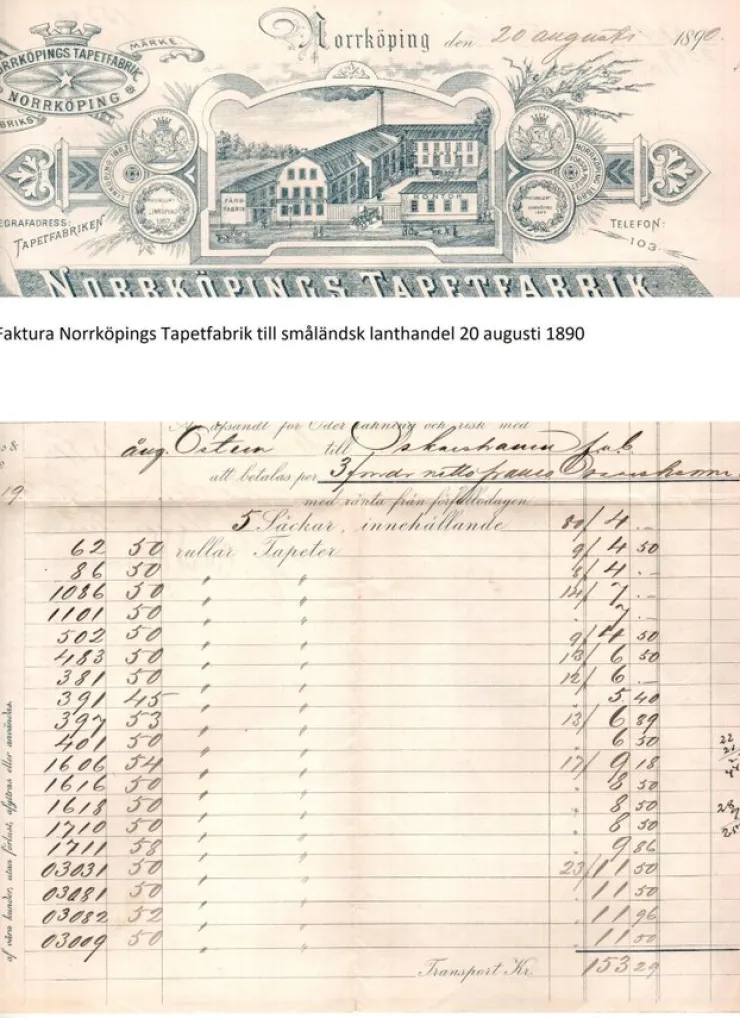 Norrköping den 20 augusti 1890.
MÄRKE
NORRKÖPINGS TAPETFABRIK
NORRKÖPING
FABRIKS
LINKÖPING 1887
NORRKÖPING
FÄRG FABRIK
KONTOR
TELEGRAFADRESS:
TAPETFABRIKEN
TELEFON:
103.
NORRKÖPINGS TAPETFABRIK.
Faktura Norrköpings Tapetfabrik till småländsk lanthandel 20 augusti 1890
afsändt för Eder räkning och risk med
ång. Östern till Oskarshamn fob
att betalas per 3 netto franco
med ränta från förfallodagen
19.
5 Säckar, innehållande 80/ 4 . –
62 50 rullar Tapeter 9/ 4 50
86 50 " " 8/ 4 . –
1086 50 " " 14/ 7 . –
1101 50 " " . 7 . –
502 50 " " 9/ 4 50
483 50 " " 13/ 6 50
381 50 " " 12/ 6 . –
391 45 " " . 5 40
397 53 " " 13/ 6 89
401 50 " " . 6 50
1606 54 " " 17/ 9 18
1616 50 " " . 8 50
1618 50 " " . 8 50
1710 50 " " . 8 50
1711 58 " " . 9 86
03031 50 " " 23/ 11 50
03081 50 " " . 11 50
03082 52 " " . 11 96
03009 50 " " . 11 50
Transport Kr. 153 29
af våra kunder, utan förlust, afyttras eller användas.